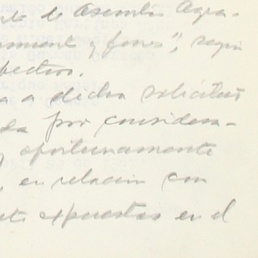 de Asamblea Agra-
y fores", según
efectivos.
a a dicha solicitud
da por considera-
y oportunamente
, en relación con
expuestas en el